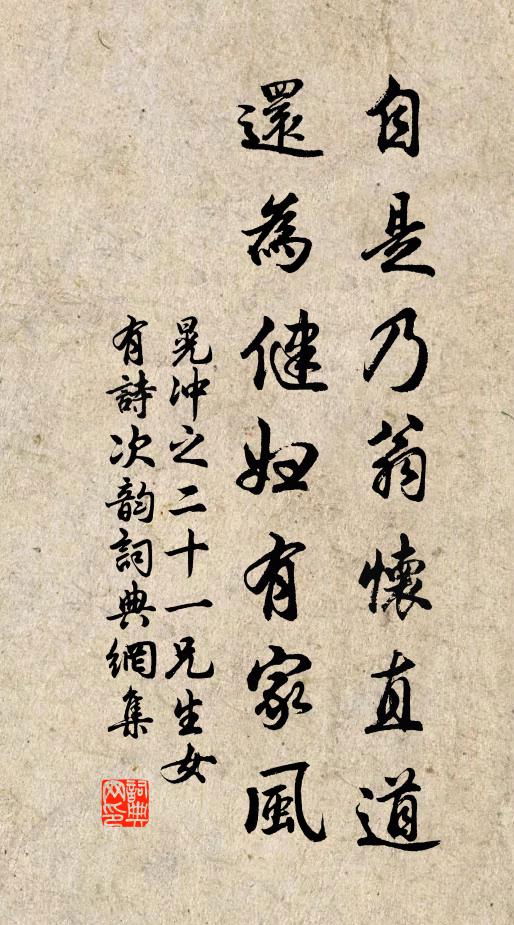 自是乃翁懷直道
還為健婦有家風
晁沖之二十一兄生女
有詩次韵詞典網集
詞典网印